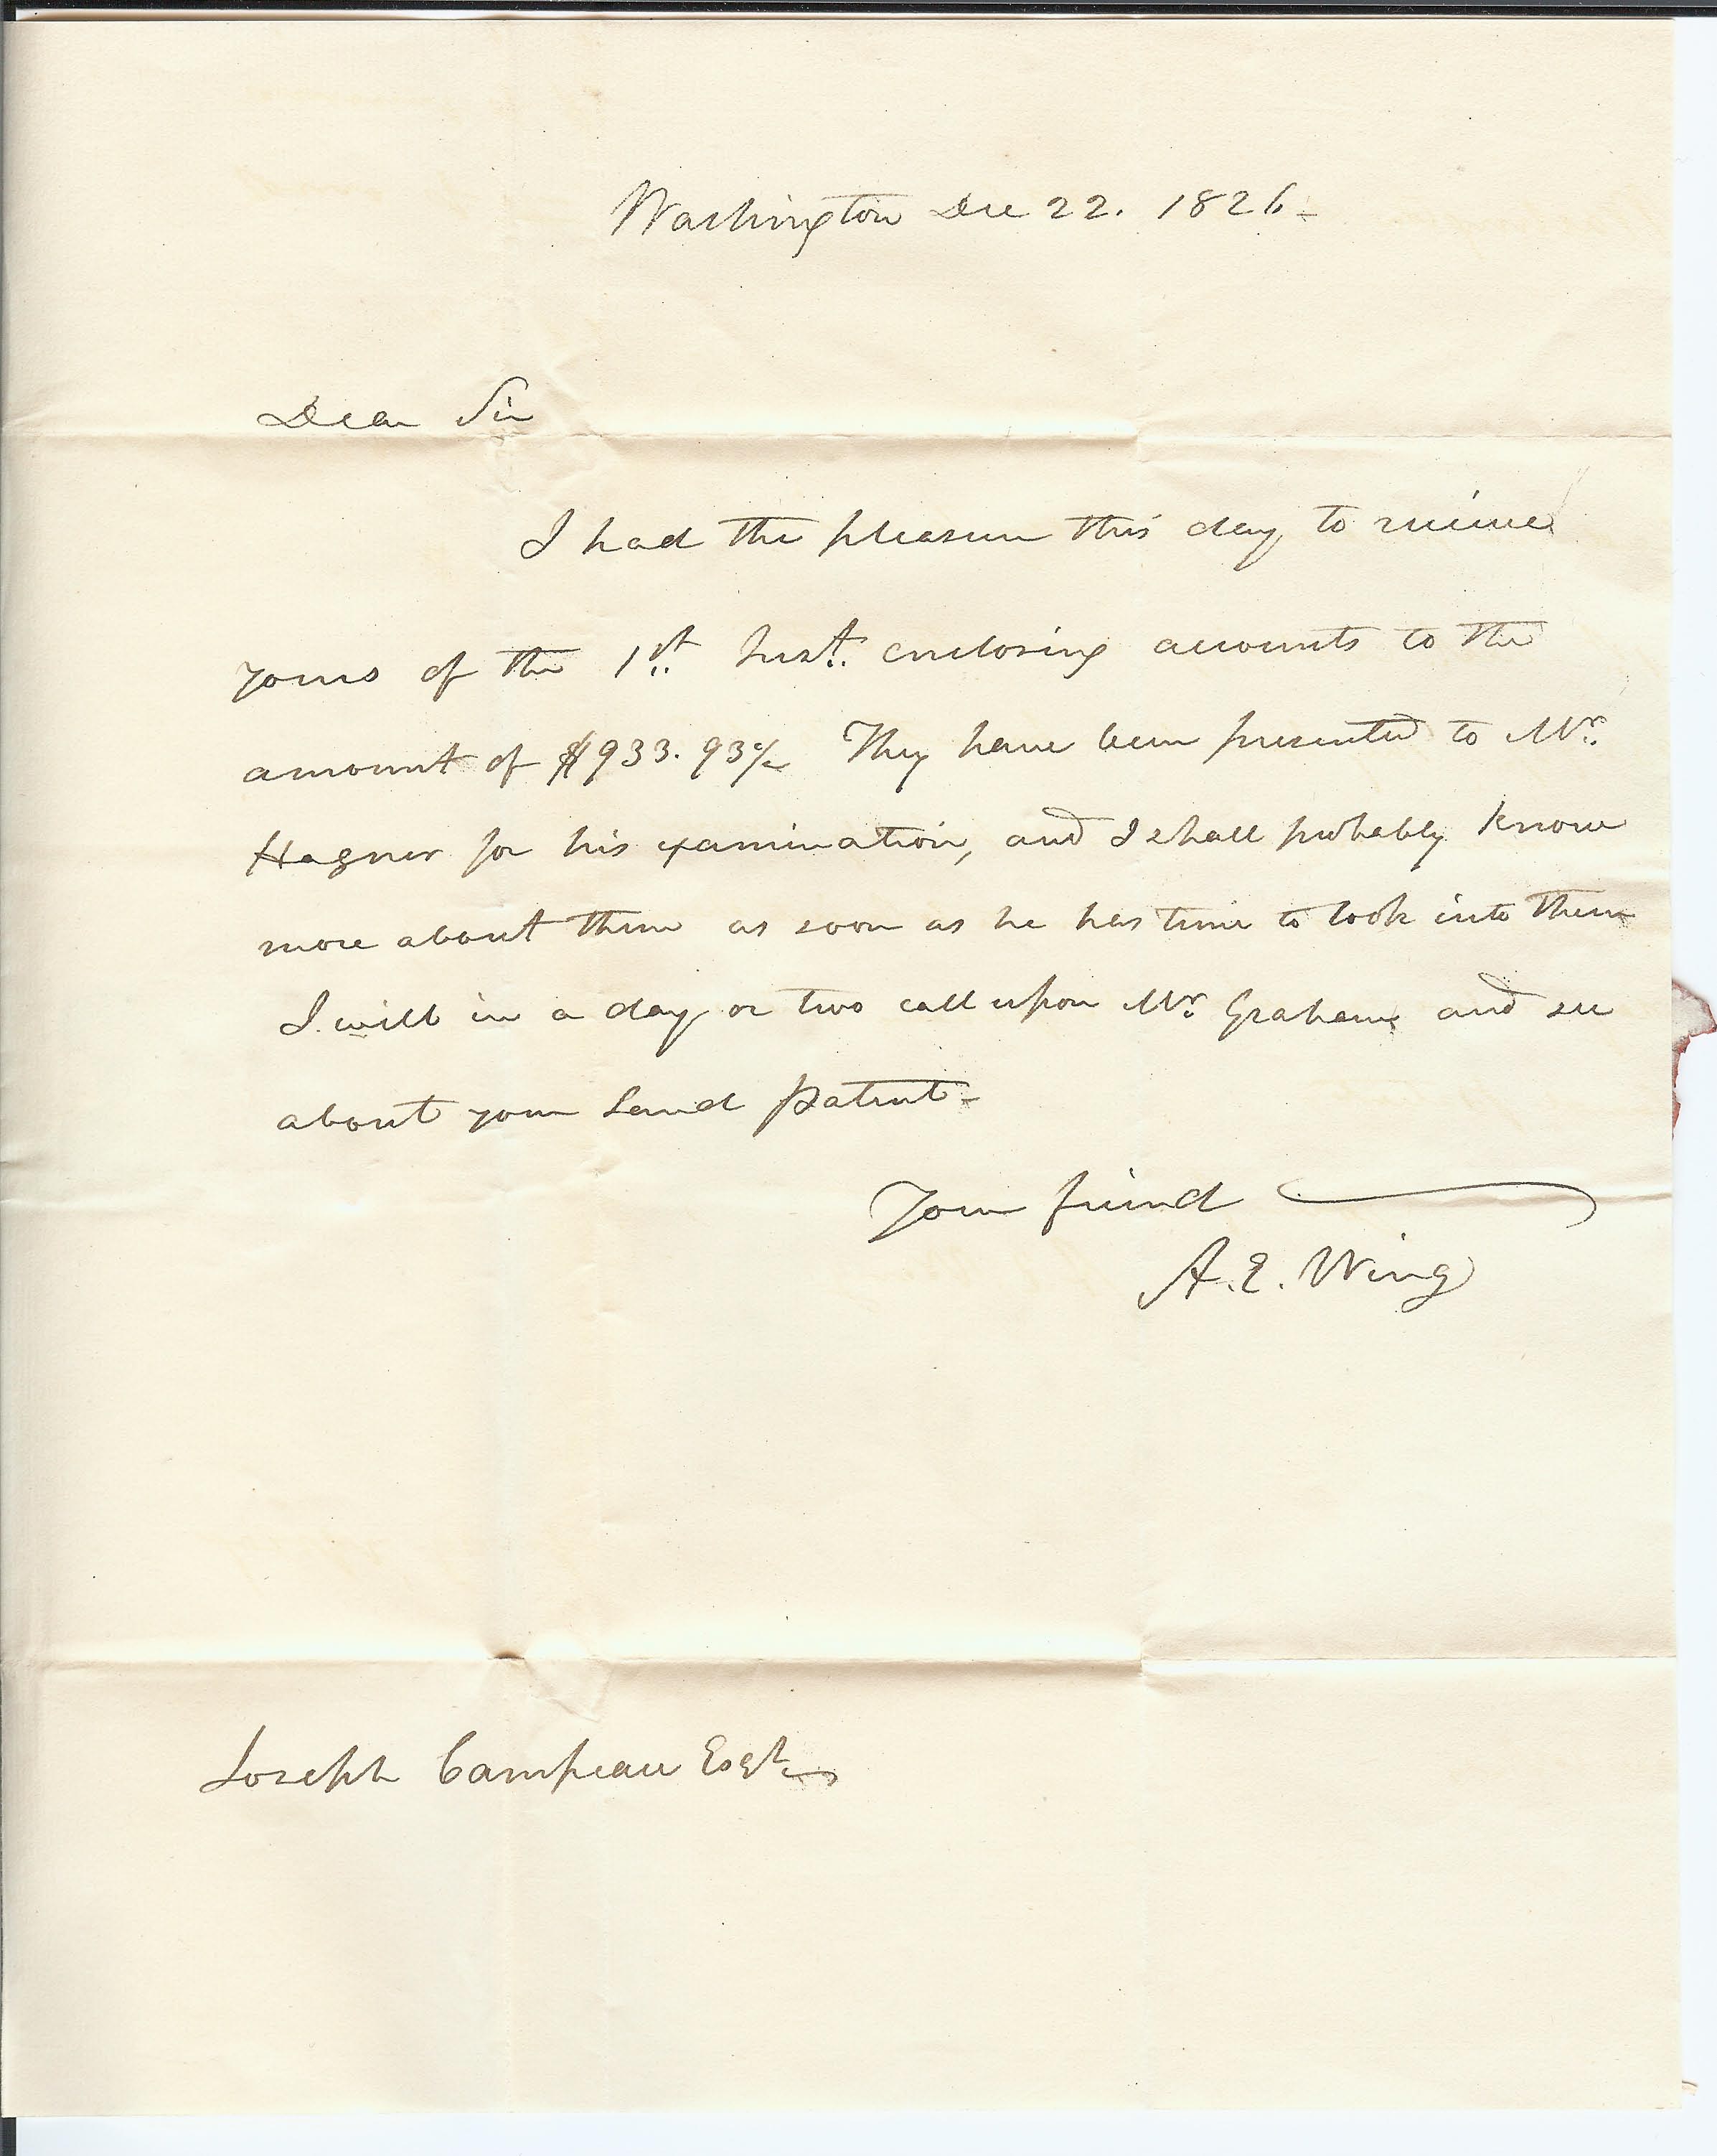 Washington Dec 22. 1826.
Dear Sir
I had the pleasure this day to receive
yours of the 1st. Inst. enclosing accounts to the
amount of $933.93 They have been presented to Mr.
Hagner for his examination, and I shall probably know
more about them as soon as he has time to look into them
I will in a day or two call upon Mr. Graham and see
about your Land patent.
Your friend
A. E. Wing
Joseph Campeau Esqr